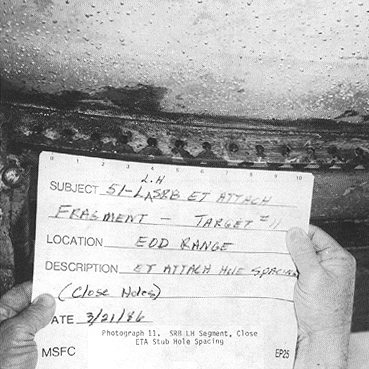 0 1 2 3 4 5 6 7 8 9 10
L.H
SUBJECT 51-L SRB ET ATTACH
FRAGMENT - TARGET #11
LOCATION EOD RANGE
DESCRIPTION ET ATTACH HOLE SPACING
(Close Holes)
DATE 3/21/86
Photograph 11. SRB LH Segment, Close
ETA Stub Hole Spacing
MSFC EP25